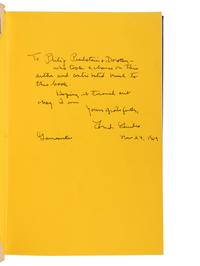 To Philip Pearlstein & Dorothy -
who took a chance on this
author and contributed much to
this book.
Hoping it turned out
okay. I am
Yours gratefully,
Nov 23, 1969